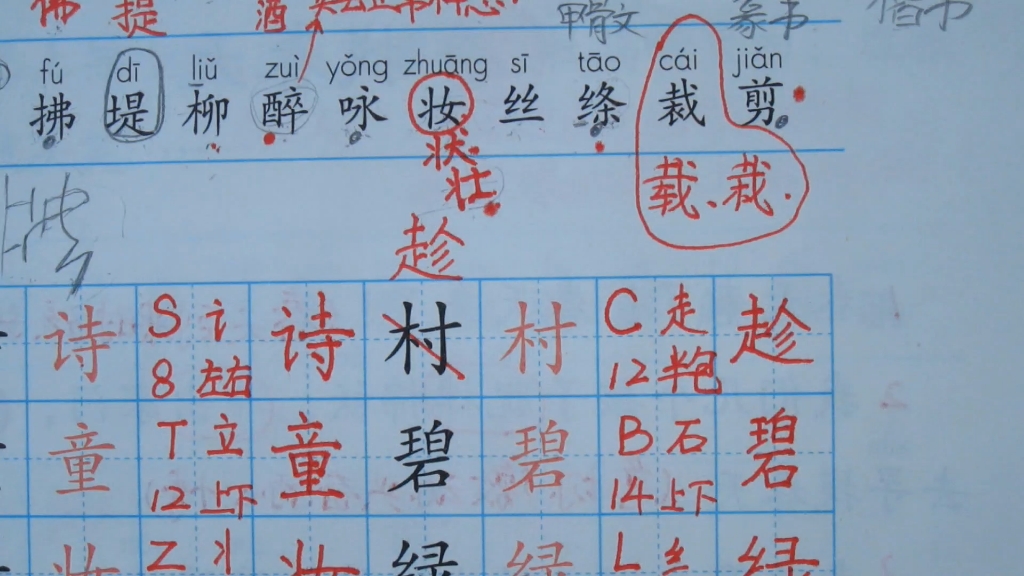 佛 提 酒
甲骨文 篆书 楷书
fú dī liǔ zuì yǒng zhuāng sī tāo cái jiǎn
拂 堤 柳 醉 咏 妆 丝 绦 裁 剪
状
壮
载、栽.
趁
诗 S 讠 诗 村 村 C 走 趁
8 左右 12 半包
童 T 立 童 碧 碧 B 石 碧
12 上下 14 上下
妆 Z 丬 妆 绿 绿 L 纟 绿